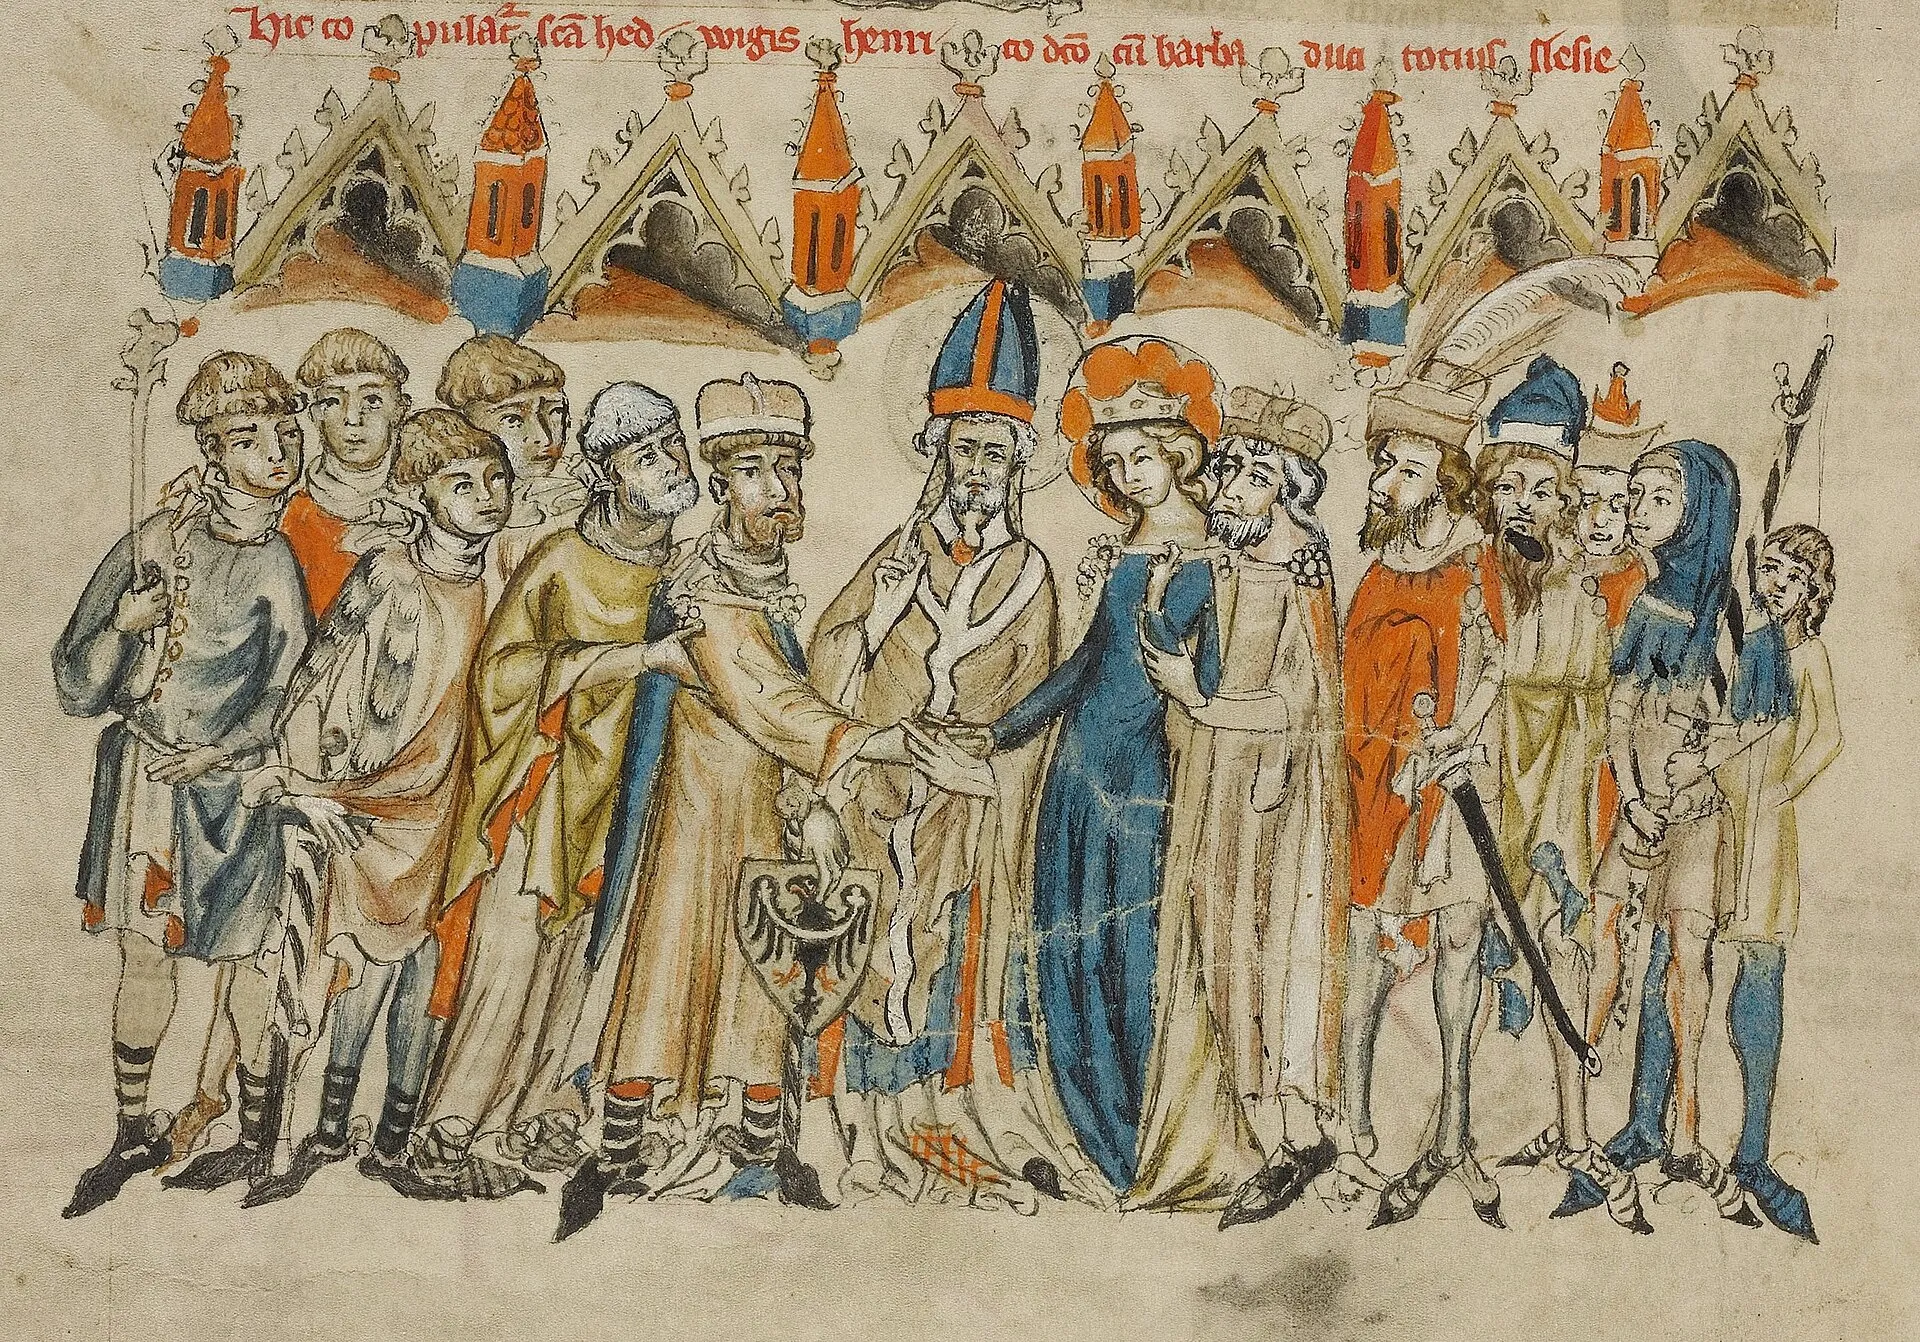 Hic copulat̄ꝛ scā hedwigis henrico dc̄o cū barba duci totius slesie